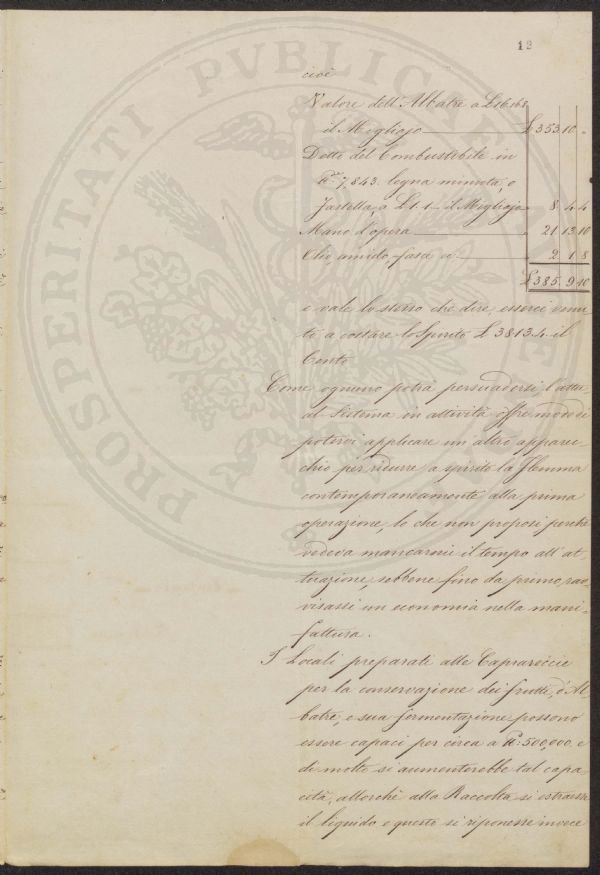 12
cioè
Valore dell'Albatre a £ 16.16.8
il Migliajo £ 353.10.„
Detto del Combustibile in
lb. 7,843. legna minuta, o
Fastella, a £ 1.1.– il Migliajo „ 8.4.4
Mano d'opera „ 21.13.10
Olio, amido, fasci a „ 2.1.8
£ 385.9.10
e vale lo stesso che dire, esserci venu
to a costare lo Spirito £ 38.13.4. il
Cento
Come ognuno potrà persuadersi l'attu
al sistema in attività offre modo di
potervi applicare un altro apparec
chio per ridurre a spirito la Flemma
contemporaneamente alla prima
operazione, lo che non proposi perchè
vedeva mancarmi il tempo all'at
tuazione, sebbene fino da primo rav
visassi un economia nella mani=
fattura.
I Locali preparati alle Caprareccie
per la conservazione dei frutti d'Al
batre, e sua fermentazione possono
essere capaci per circa a lb. 500,000. e
di molto si aumenterebbe tal capa
cità, allorchè alla Raccolta si estraesse
il liquido e questo si riponesse invece
PROSPERITATI PVBLICAE AVGENDAE